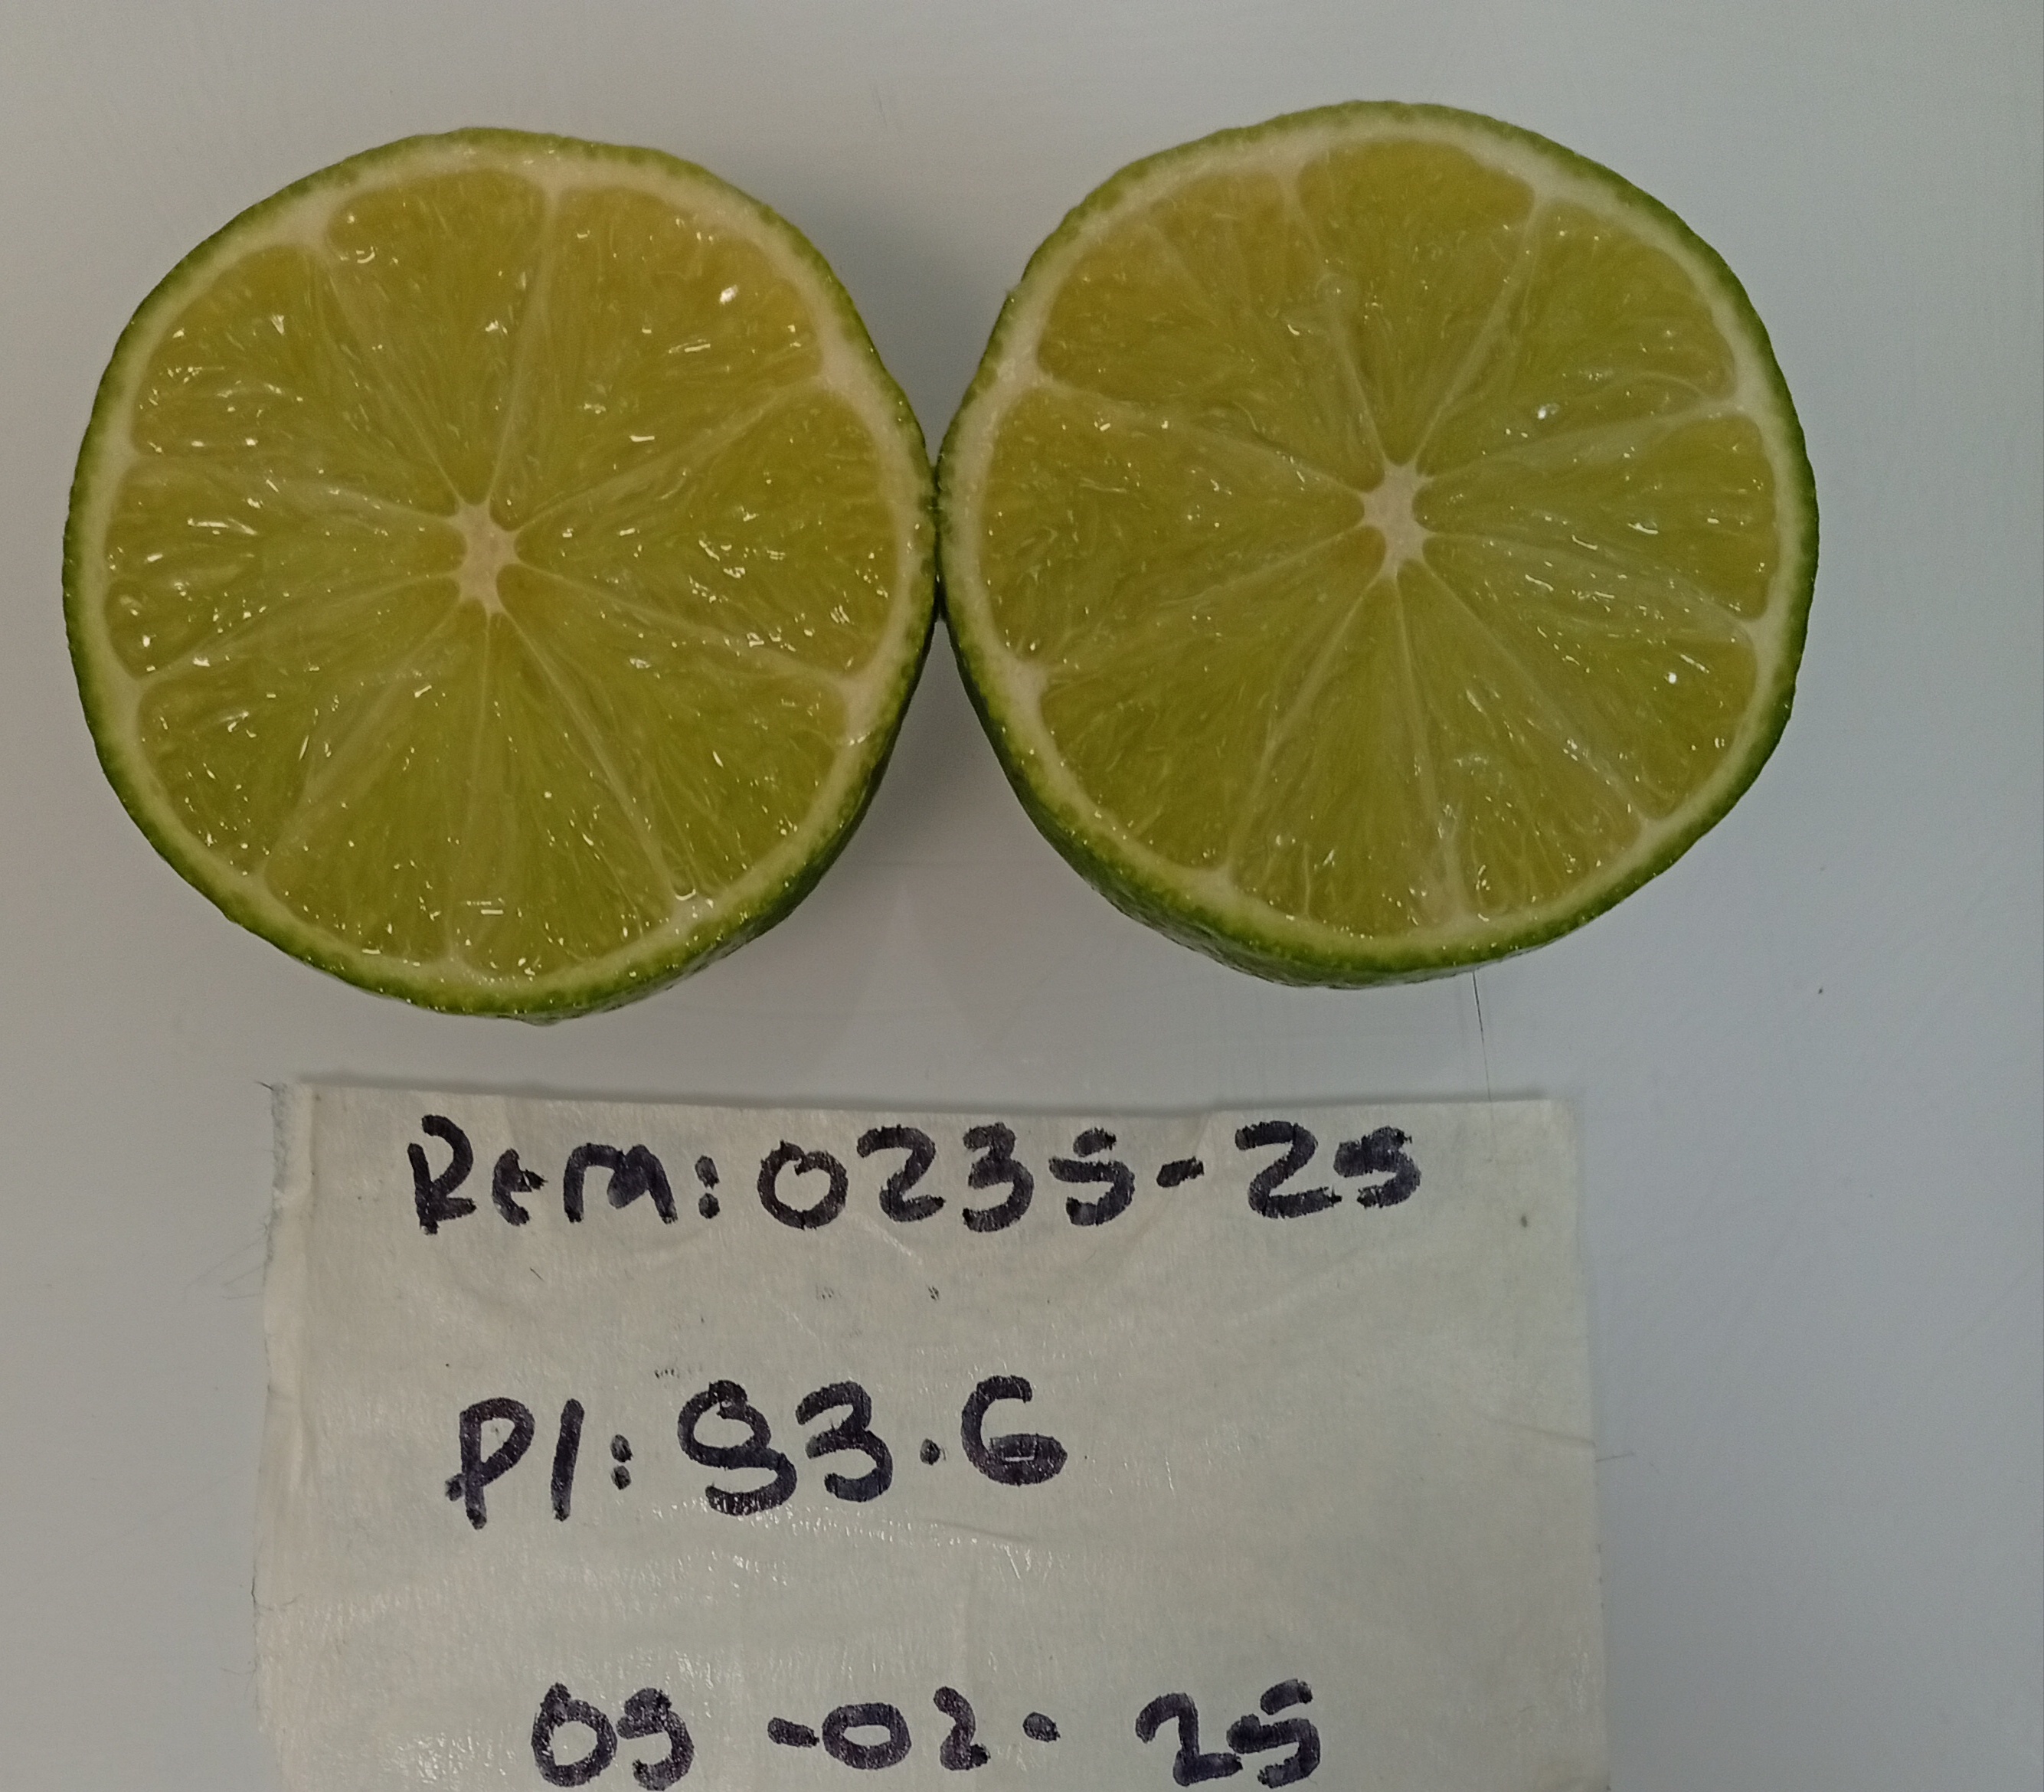 Rem: 0235-25
Pl: 93.6
09-02-25